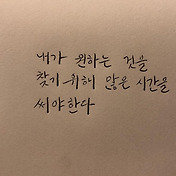 내가 원하는 것을
찾기 위해 많은 시간을
써야한다